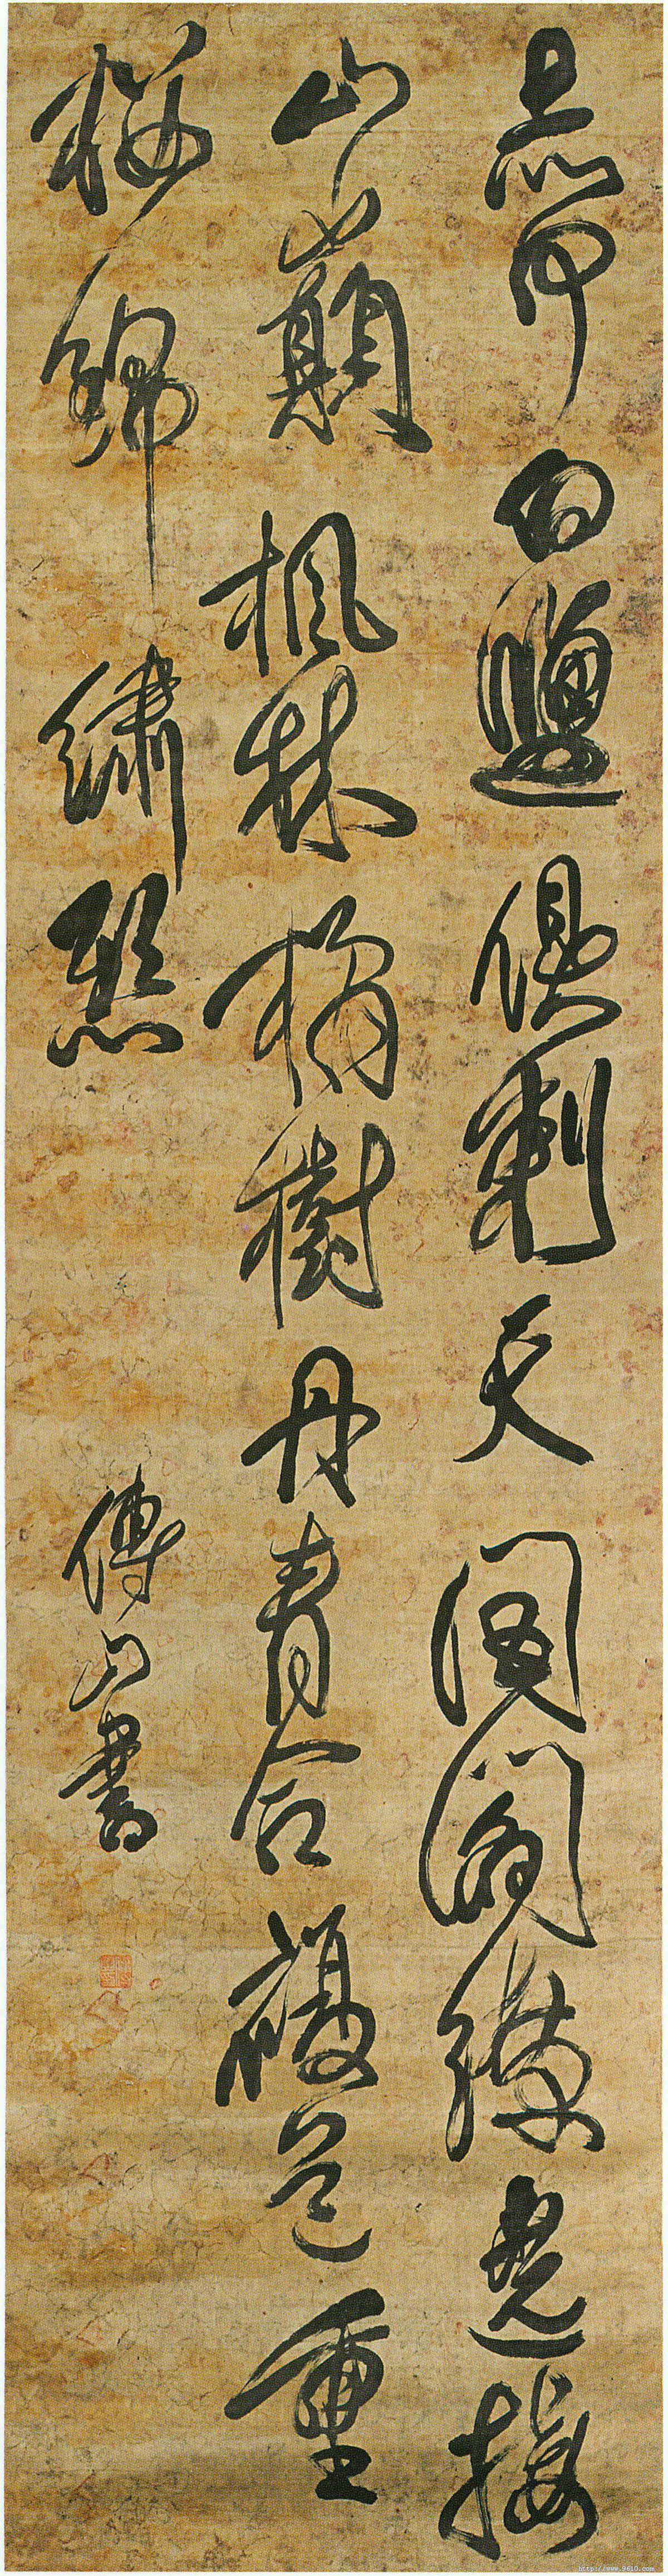 赤甲白鹽俱刺天閭閻繚遶接
山巔楓林橘樹丹青合複道重
樓錦繡懸
傅山書
http://www.9610.com